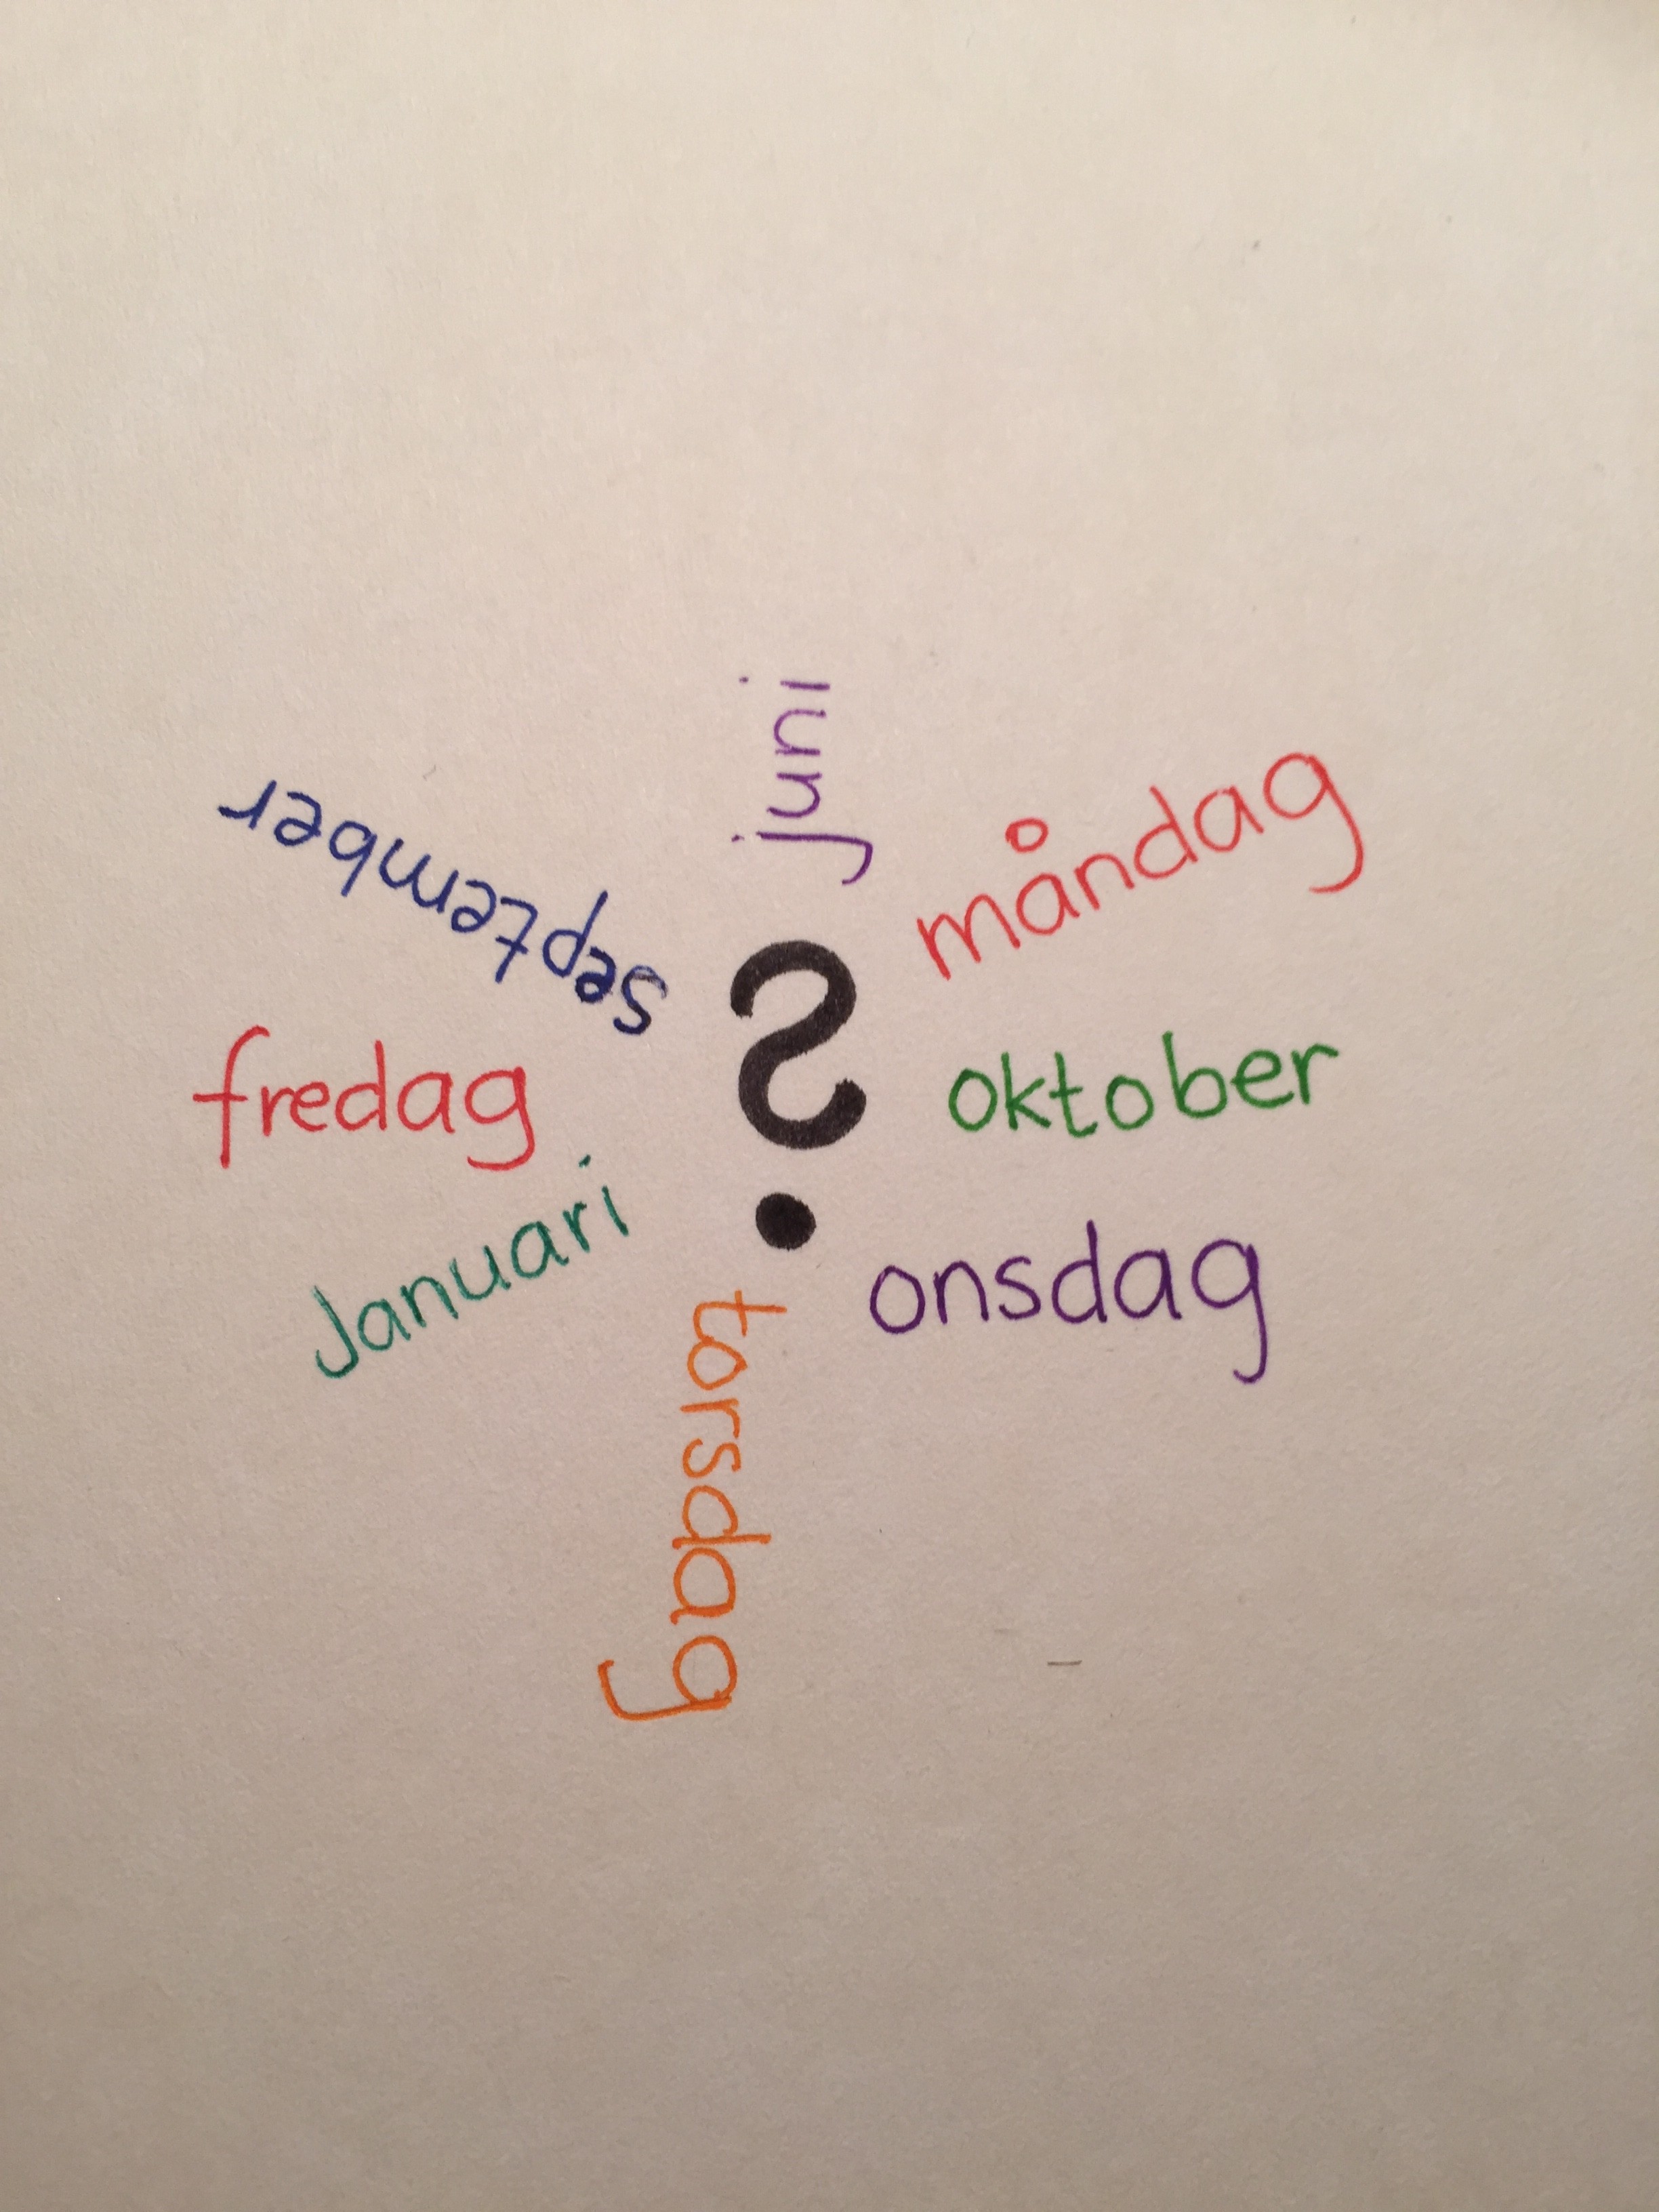 juni
måndag
september
?
oktober
fredag
Januari
onsdag
torsdag